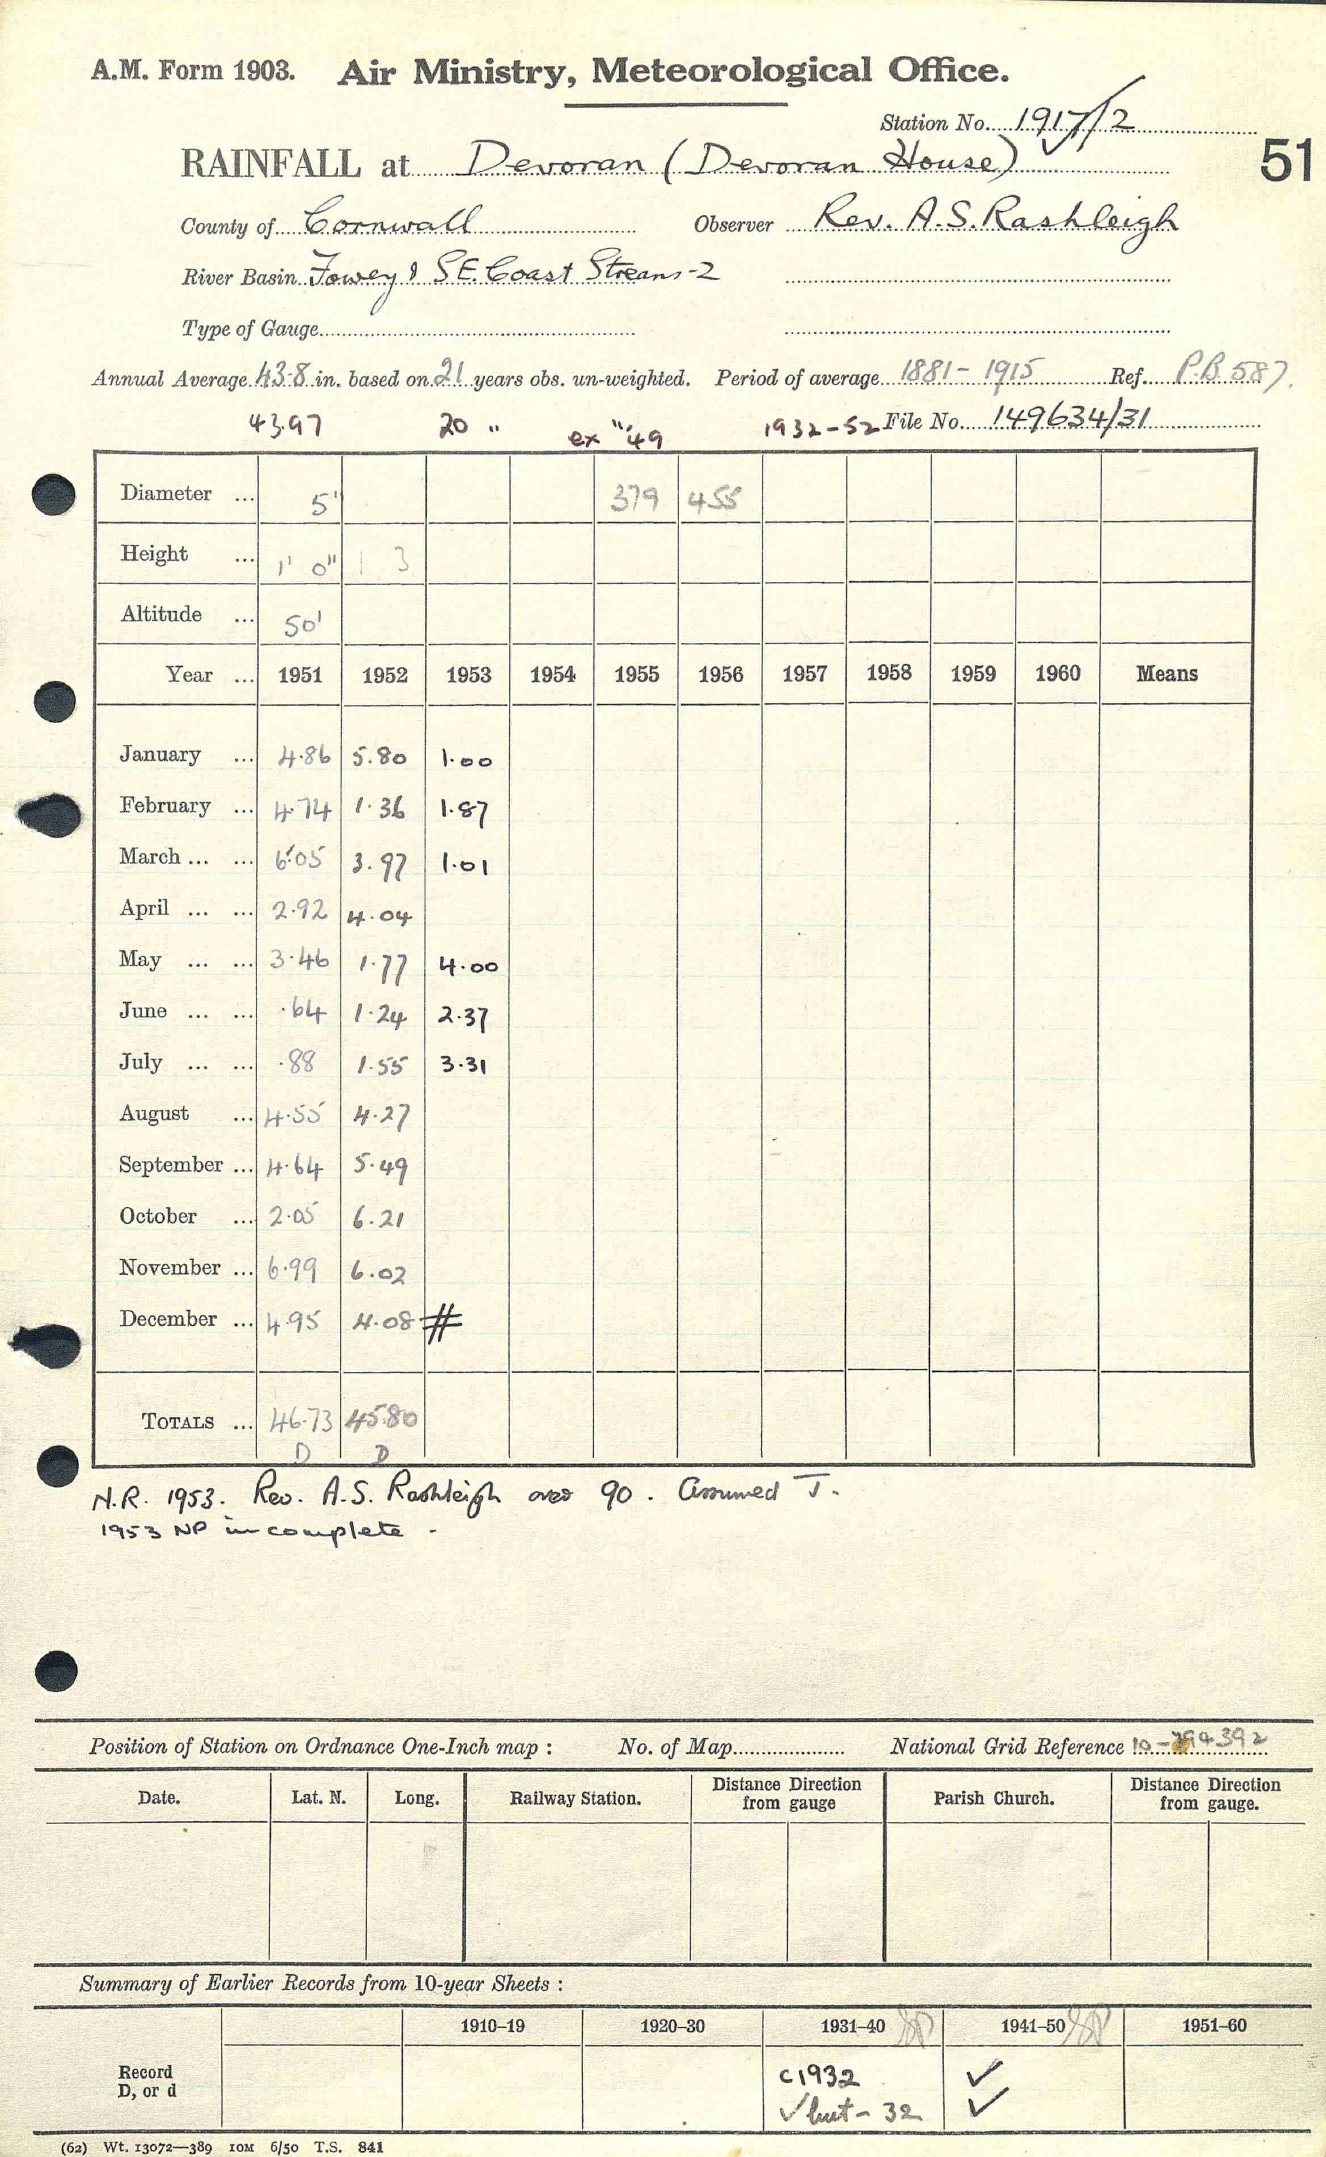 A.M. Form 1903. Air Ministry, Meteorological Office.
Station No. 1917/2
51
RAINFALL at Devoran (Devoran House)
County of Cornwall Observer Rev. A.S. Rashleigh
River Basin Fowey & S.E. Coast Streams-2
Type of Gauge
Annual Average 43.8 in. based on 21 years obs. un-weighted. Period of average 1881-1915 Ref. P.B. 587.
43.97 20 " ex "49 1932-52 File No. 149634/31
Diameter ... 5" 379 455
Height ... 1' 0" 1 3
Altitude ... 50'
Year ... 1951 1952 1953 1954 1955 1956 1957 1958 1959 1960 Means
January ... 4.86 5.80 1.00
February ... 4.74 1.36 1.87
March ... ... 6.05 3.97 1.01
April ... ... 2.92 4.04
May ... ... 3.46 1.77 4.00
June ... ... .64 1.24 2.37
July ... ... .88 1.55 3.31
August ... 4.55 4.27
September ... 4.64 5.49
October ... 2.05 6.21
November ... 6.99 6.02
December ... 4.95 4.08 #
TOTALS ... 46.73 45.80
D D
N.R. 1953. Rev. A.S. Rashleigh over 90. Assumed T.
1953 NP incomplete -
Position of Station on Ordnance One-Inch map : No. of Map National Grid Reference 10-794392
Date. Lat. N. Long. Railway Station. Distance Direction from gauge Parish Church. Distance Direction from gauge.
Summary of Earlier Records from 10-year Sheets :
1910–19 1920–30 1931–40 1941–50 1951–60
Record D, or d c1932 ✓
✓ but - 32 ✓
(62) Wt. 13072—389 10M 6/50 T.S. 841